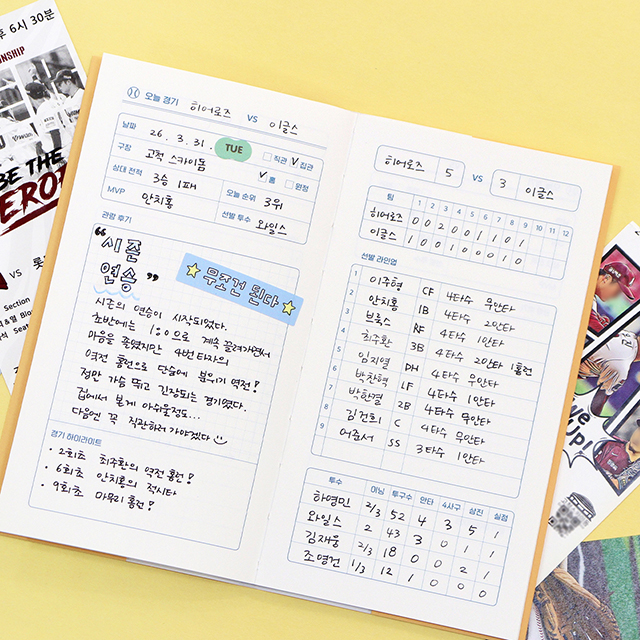 후 6시 30분
BE THE
VS 롯
Section
오늘 경기 히어로즈 VS 이글스
날짜 26. 3. 31. TUE 직관 V 집관
구장 고척 스카이돔 V 홈 원정
상대 전적 3승 1패 오늘 순위 3위
MVP 안치홍 선발 투수 와일스
관람 후기
"시즌
연승"
무조건 된다
시즌의 연승이 시작되었다.
초반에는 1:0으로 계속 끌려가면서
마음을 졸였지만 4번 타자의
역전 홈런으로 단숨에 분위기 역전!
점만 가슴 뛰고 긴장되는 경기였다.
집에서 본게 아쉬울정도...
다음엔 꼭 직관하러 가야겠다
경기 하이라이트
• 2회초 최주환의 역전 홈런!
• 6회초 안치홍의 적시타
• 9회초 마무리 홈런!
히어로즈 5 VS 3 이글스
팀 1 2 3 4 5 6 7 8 9 10 11 12
히어로즈 0 0 2 0 0 1 1 0 1
이글스 1 0 0 1 0 0 0 1 0
선발 라인업
1 이주형 CF 4타수 무안타
2 안치홍 1B 4타수 2안타
3 브룩스 RF 4타수 1안타
4 최주환 3B 4타수 2안타 1홈런
5 임지열 DH 4타수 무안타
6 박찬형 LF 4타수 1안타
7 박한결 2B 4타수 무안타
8 김건희 C 4타수 무안타
9 어준서 SS 3타수 1안타
투수 이닝 투구수 안타 4사구 삼진 실점
하영민 2/3 52 4 3 5 1
와일스 2 43 3 0 1 1
김재웅 2/3 18 0 0 2 1
조영건 1/3 12 1 0 0 0